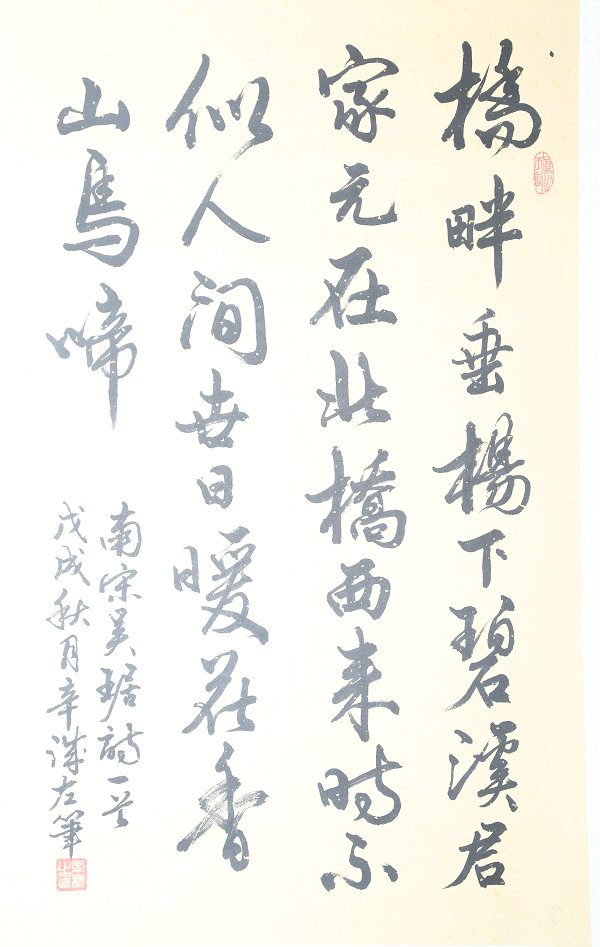 橋畔垂楊下碧溪君
家元在北橋西來時不
似人間世日暖花香
山馬啼
南宋吴琚詩一首
戊戌秋月辛謙左筆